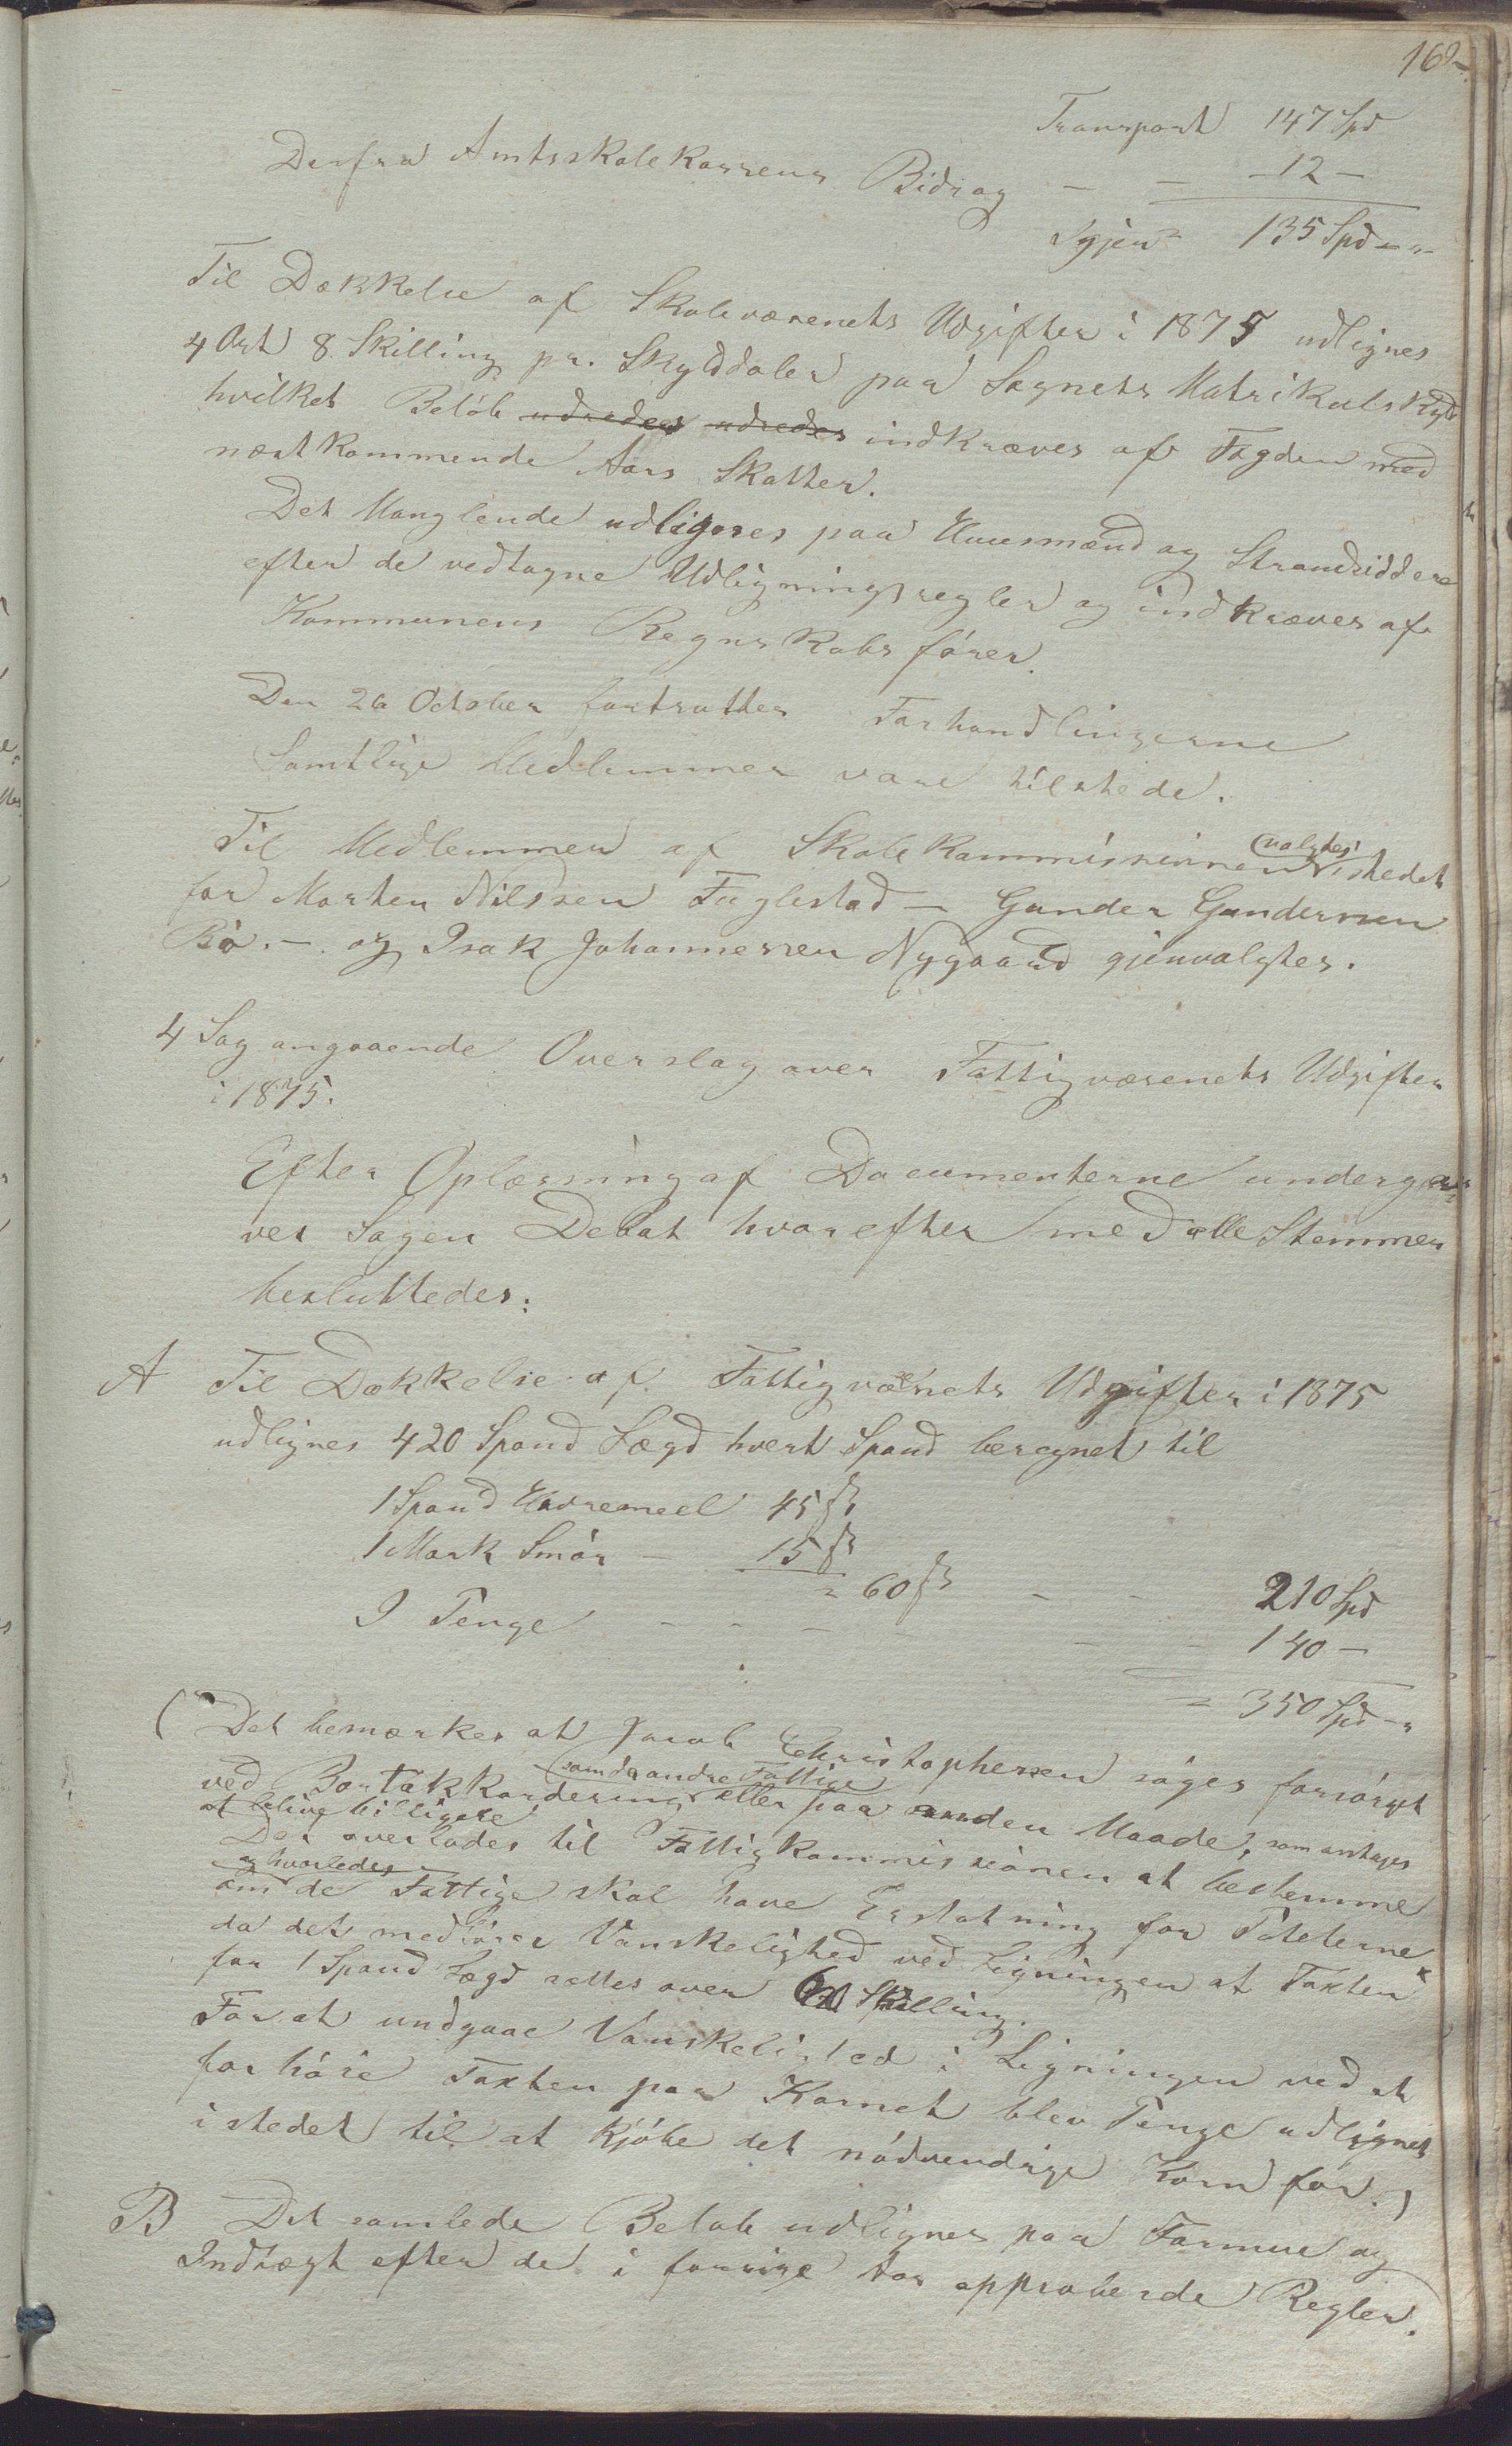 Transport 147 Spd
Derfra Amtsskolekassens Bidrag — — -12-
Igjen = 135 Spd - "-
Til Dækkelse af Skolevæsenets Udgifter i 1875 udlignes
4 Ort 8 Skilling pr. Skylddaler paa Sognets Matrikulskyld
hvilket Beløb udredes udredes indkræves af Fogden med
næstkommende Aars Skatter.
Det Manglende udlignes paa Huusmænd og Strandsiddere
efter de vedtagne Udligningsregler og indkræves af
Kommunens Regnskabsfører.
Den 26 October fortsattes Forhandlingerne
Samtlige Medlemmer vare tilstede.
Til Medlemmer af Skolekommissionen (valgtes) istedet
for Morten Nilssen Fuglestad — Gunder Gundersen
Bø. — og Isak Johannessen Nygaard gjenvalgtes.
4 Sag angaaende Overslag over Fattigvæsenets Udgifter
i 1875.
Efter Oplæsning af Documenterne undergaves
ves Sagen Debat hvorefter med alle Stemmer
besluttedes:
A Til Dækkelse af Fattigvæsenets Udgifter i 1875
udlignes 420 Spand Lægd hvert Spand beregnet til
1 Spand Havremeel 45 ß
1 Mark Smør — 15 ß
= 60 ß — — 210 Spd
I Penge — — — — — — 140 —
= 350 Spd - "
(Det bemærkes at Jacob Christophersen søges forsørget
som de andre Fattige
ved Bortakkordering eller paa anden Maade, som antages
at blive billigere
Det overlades til Fattigkommissionen at bestemme
og hvorledes
om de Fattige skal have Erstatning for Poteterne
da det medfører Vanskelighed ved Ligningen at Taxten
for 1 Spand Lægd sættes over 60 Skilling.
For at undgaae Vanskelighed i Ligningen ved at
forhøie Taxten paa Kornet blev Penge udlignet
istedet til at kjøbe det nødvendige Korn for.)
B Det samlede Beløb udlignes paa Formue og
Indtægt efter de i forrige Aar approberede Regler.